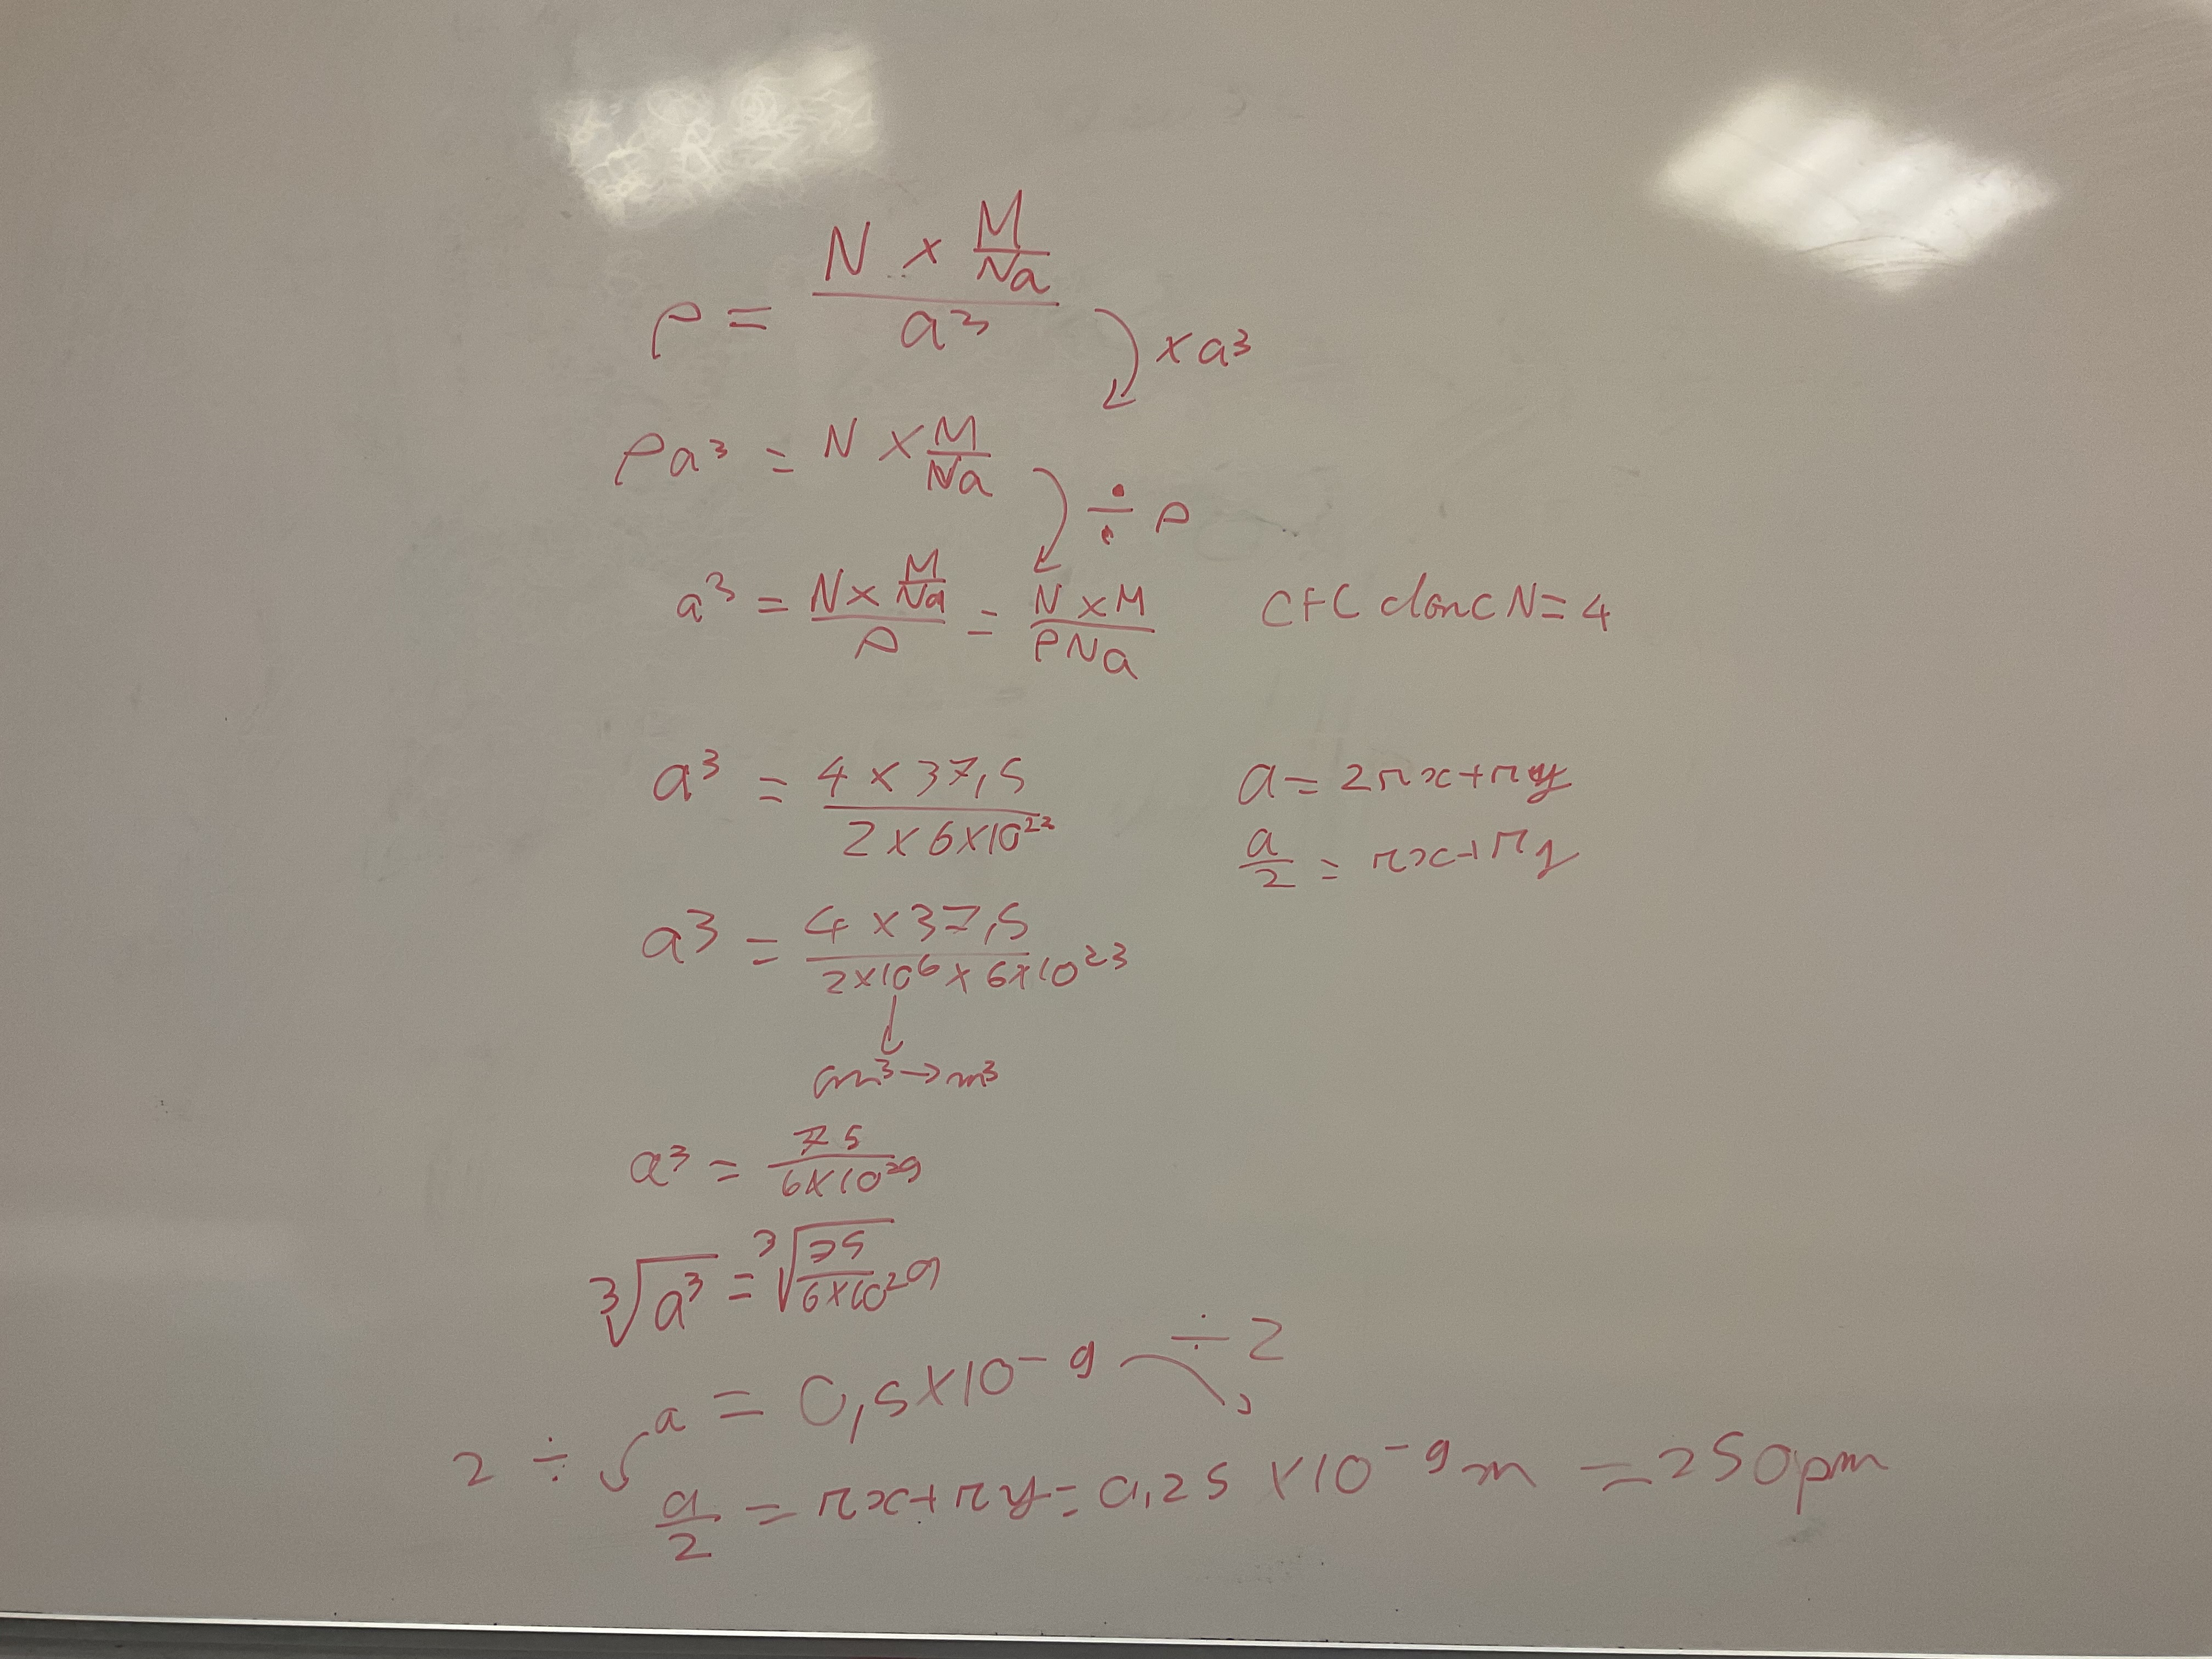 ρ = (N × M/Na)/a³
× a³
ρa³ = N × M/Na
÷ ρ
a³ = (N × M/Na)/ρ = (N × M)/(ρNa) CFC donc N = 4
a³ = (4 × 37,5)/(2 × 6 × 10²³) a = 2rx + ry
a/2 = rx + ry
a³ = (4 × 37,5)/(2×10⁶ × 6×10²³)
cm³ → m³
a³ = 75/(6×10²⁹)
³√a³ = ³√(75/(6×10²⁹))
÷ 2
a = 0,5×10⁻⁹
2 ÷
a/2 = rx + ry = 0,25 × 10⁻⁹ m = 250pm